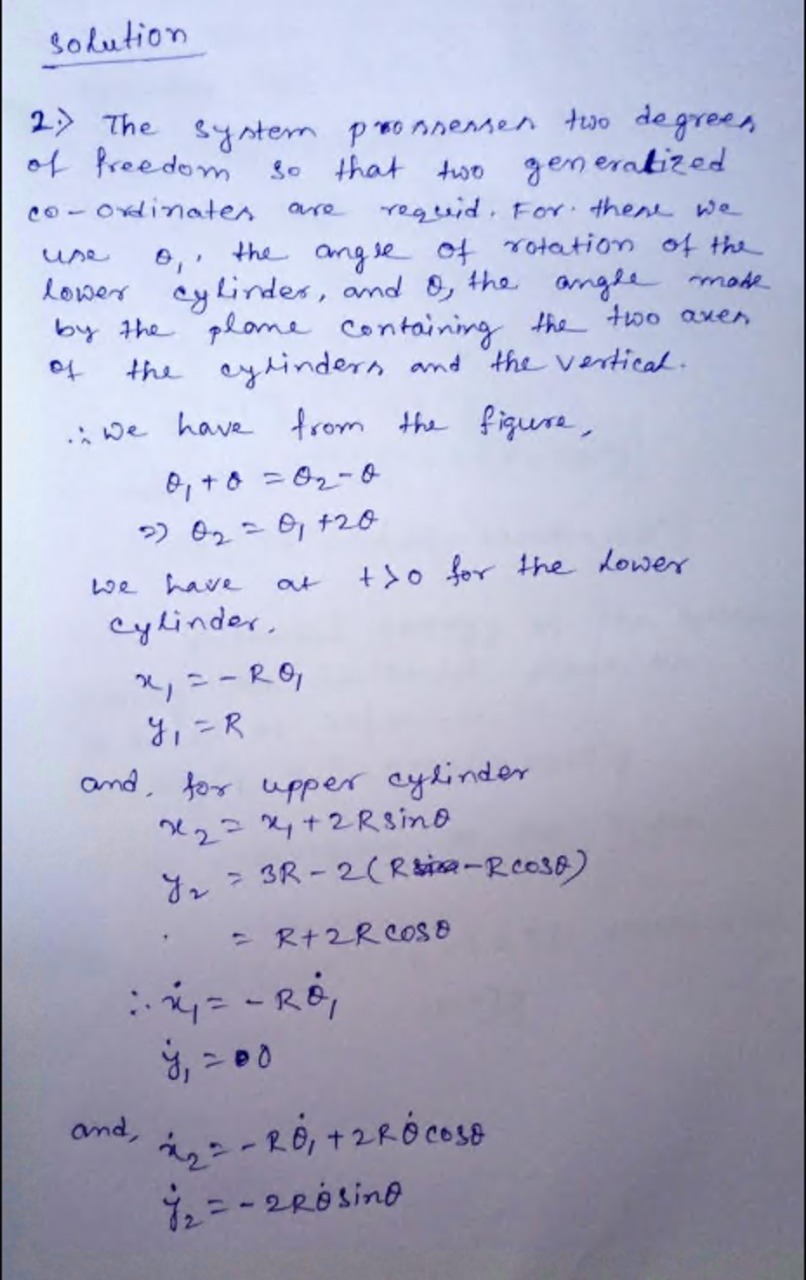 Solution
2.> The system prossesses two degrees
of freedom so that two generalized
co-ordinates are requid. For these we
use θ₁, the angle of rotation of the
lower cylinder, and θ, the angle made
by the plane containing the two axes
of the cylinders and the vertical.
∴ we have from the figure,
θ₁ + θ = θ₂ - θ
=> θ₂ = θ₁ + 2θ
we have at t>0 for the lower
cylinder,
x₁ = - Rθ₁
y₁ = R
and, for upper cylinder
x₂ = x₁ + 2R sinθ
y₂ = 3R - 2(R - R cosθ)
= R + 2R cosθ
∴ ẋ₁ = - Rθ̇₁
ẏ₁ = 0
and, ẋ₂ = - Rθ̇₁ + 2Rθ̇ cosθ
ẏ₂ = - 2Rθ̇ sinθ